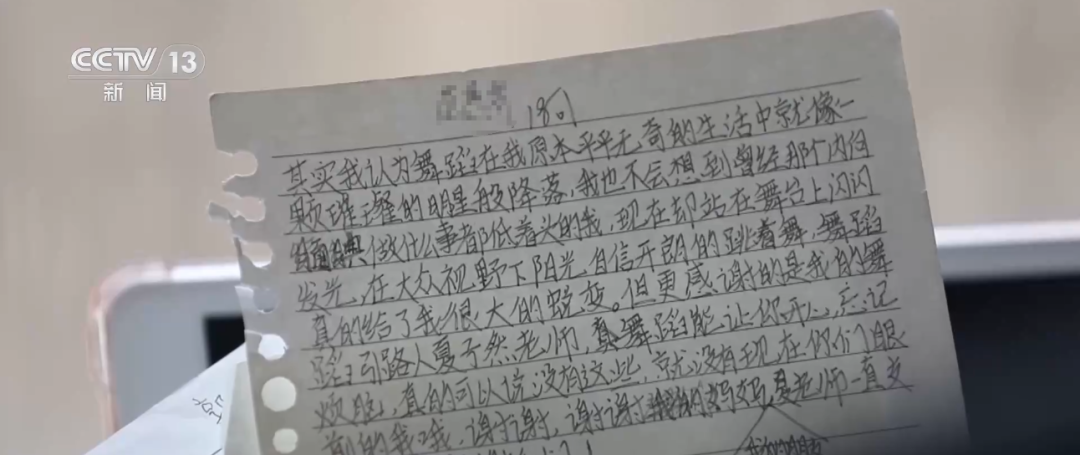 CCTV 13
新闻
1801
其实我认为舞蹈在我原本平平无奇的生活中就像一
颗璀璨的明星般降落,我也不会想到曾经那个内向
腼腆做什么事都低着头的我,现在却站在舞台上闪闪
发光,在大众视野下阳光自信开朗的跳着舞,舞蹈
真的给了我很大的蜕变。但更感谢的是我的舞
蹈引路人夏于然老师,真舞蹈能让你开心,忘记
烦恼,真的可以说没有这些,就没有现在你们眼
前的我哦,谢谢,谢谢我的妈妈,夏老师一直支